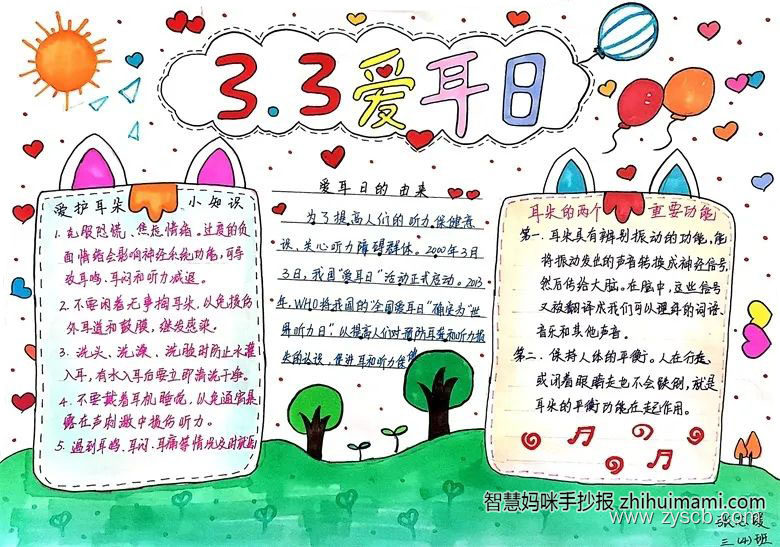 3.3爱耳日
爱护耳朵小知识
1. 克服恐慌、焦虑情绪。过度的负
面情绪会影响神经系统功能,可导
致耳鸣、耳闷和听力减退。
2. 不要闲着无事掏耳朵,以免损伤
外耳道和鼓膜,继发感染。
3. 洗头、洗澡、洗脸时防止水灌
入耳,有水入耳后要立即清洗干净。
4. 不要戴着耳机睡觉,以免通宵暴
露在声刺激中损伤听力。
5. 遇到耳鸣、耳闷、耳痛等情况及时就
爱耳日的由来
为了提高人们的听力保健意
识、关心听力障碍群体。2000年3月
3日,我国"爱耳日"活动正式启动。2013
年,WHO将我国的"全国爱耳日"确定为"世
界听力日",以提高人们对预防耳聋和听力损
失的认识,促进耳和听力保健
耳朵的两个重要功能
第一、耳朵具有辨别振动的功能,能
将振动发出的声音转换成神经信号,
然后传给大脑。在脑中,这些信号
又被翻译成我们可以理解的词语、
音乐和其他声音。
第二、保持人体的平衡。人在行走
或闭着眼睛走也不会跌倒,就是
耳朵的平衡功能在起作用。
智慧妈咪手抄报 zhihuimami.com
www.zyscb.com
三(4)班